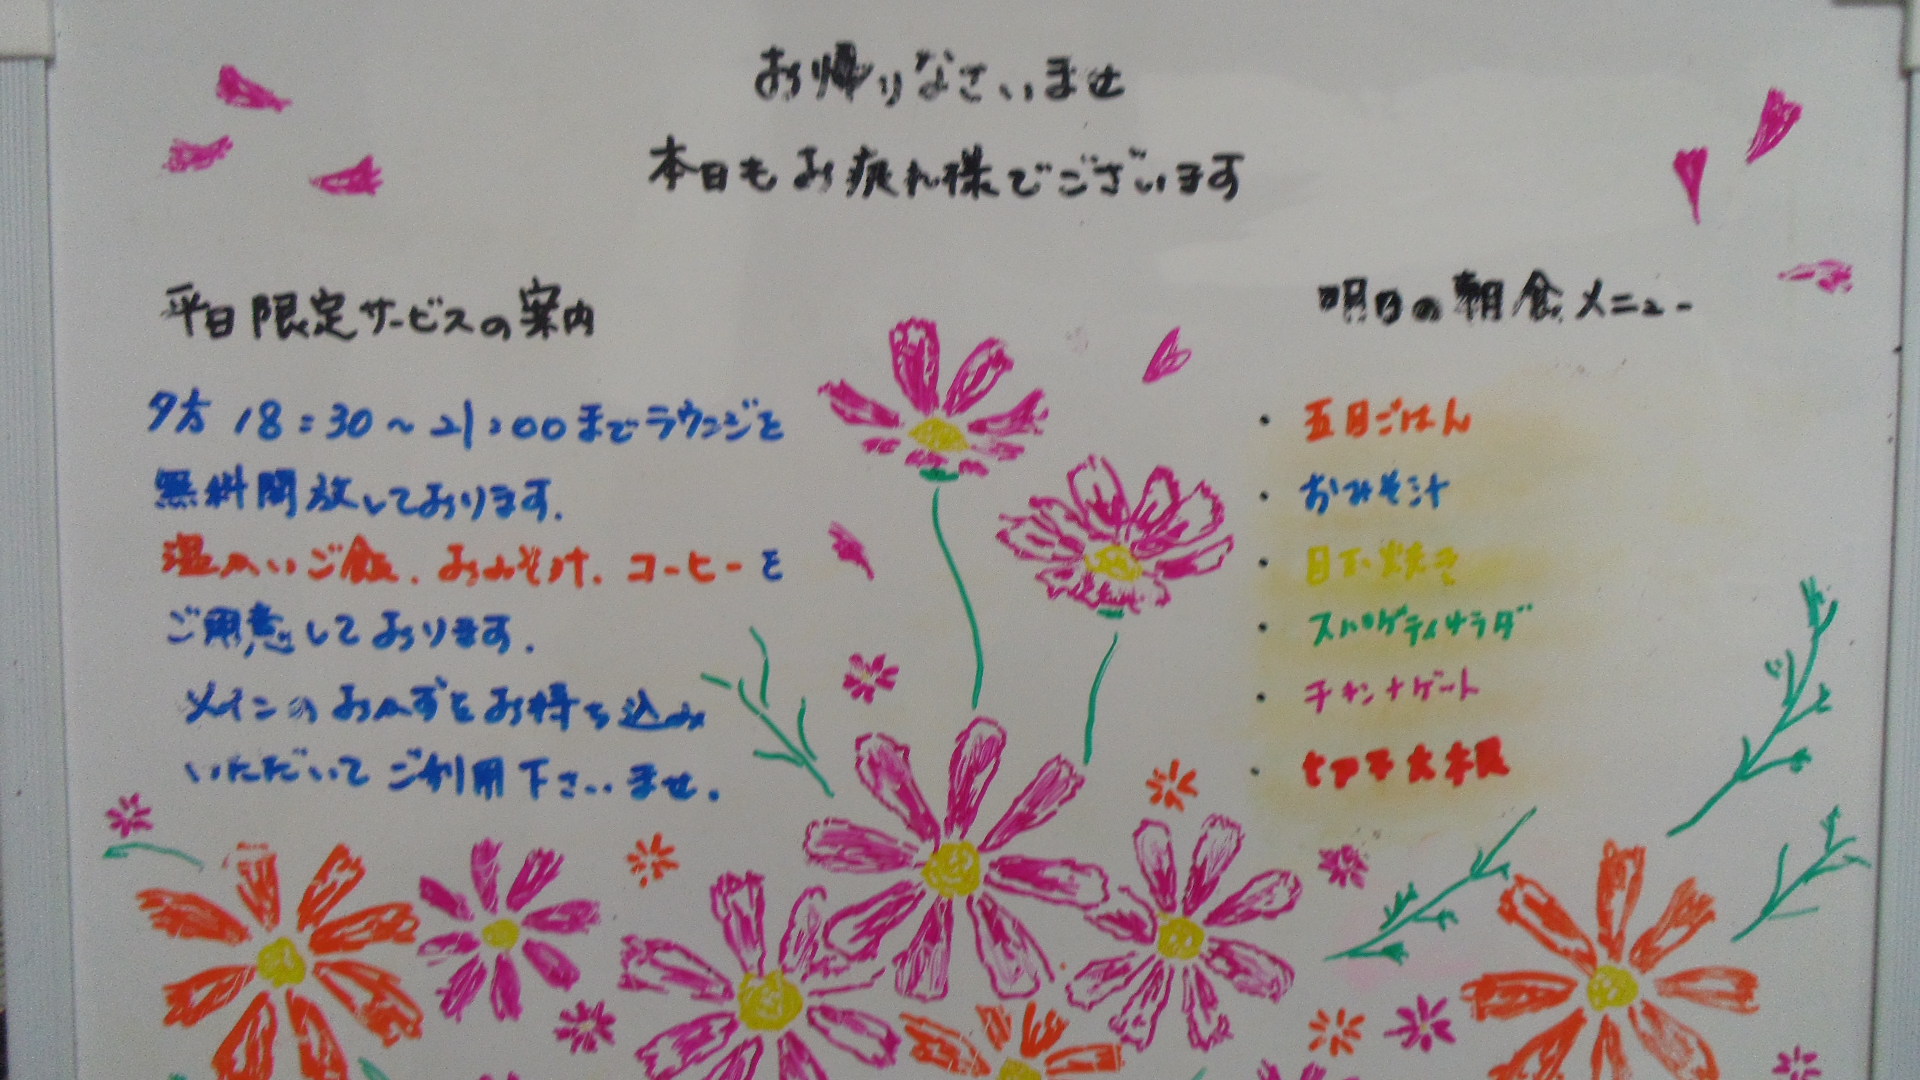 お帰りなさいませ
本日もお疲れ様でございます
平日限定サービスの案内
夕方 18:30~21:00までラウンジを
無料開放しております.
温かいご飯、おみそ汁、コーヒーを
ご用意しております.
メインのおかずをお持ち込み
いただいてご利用下さいませ.
明日の朝食メニュー
・五目ごはん
・おみそ汁
・焼き
・スパゲティサラダ
・チキンナゲット
・大根